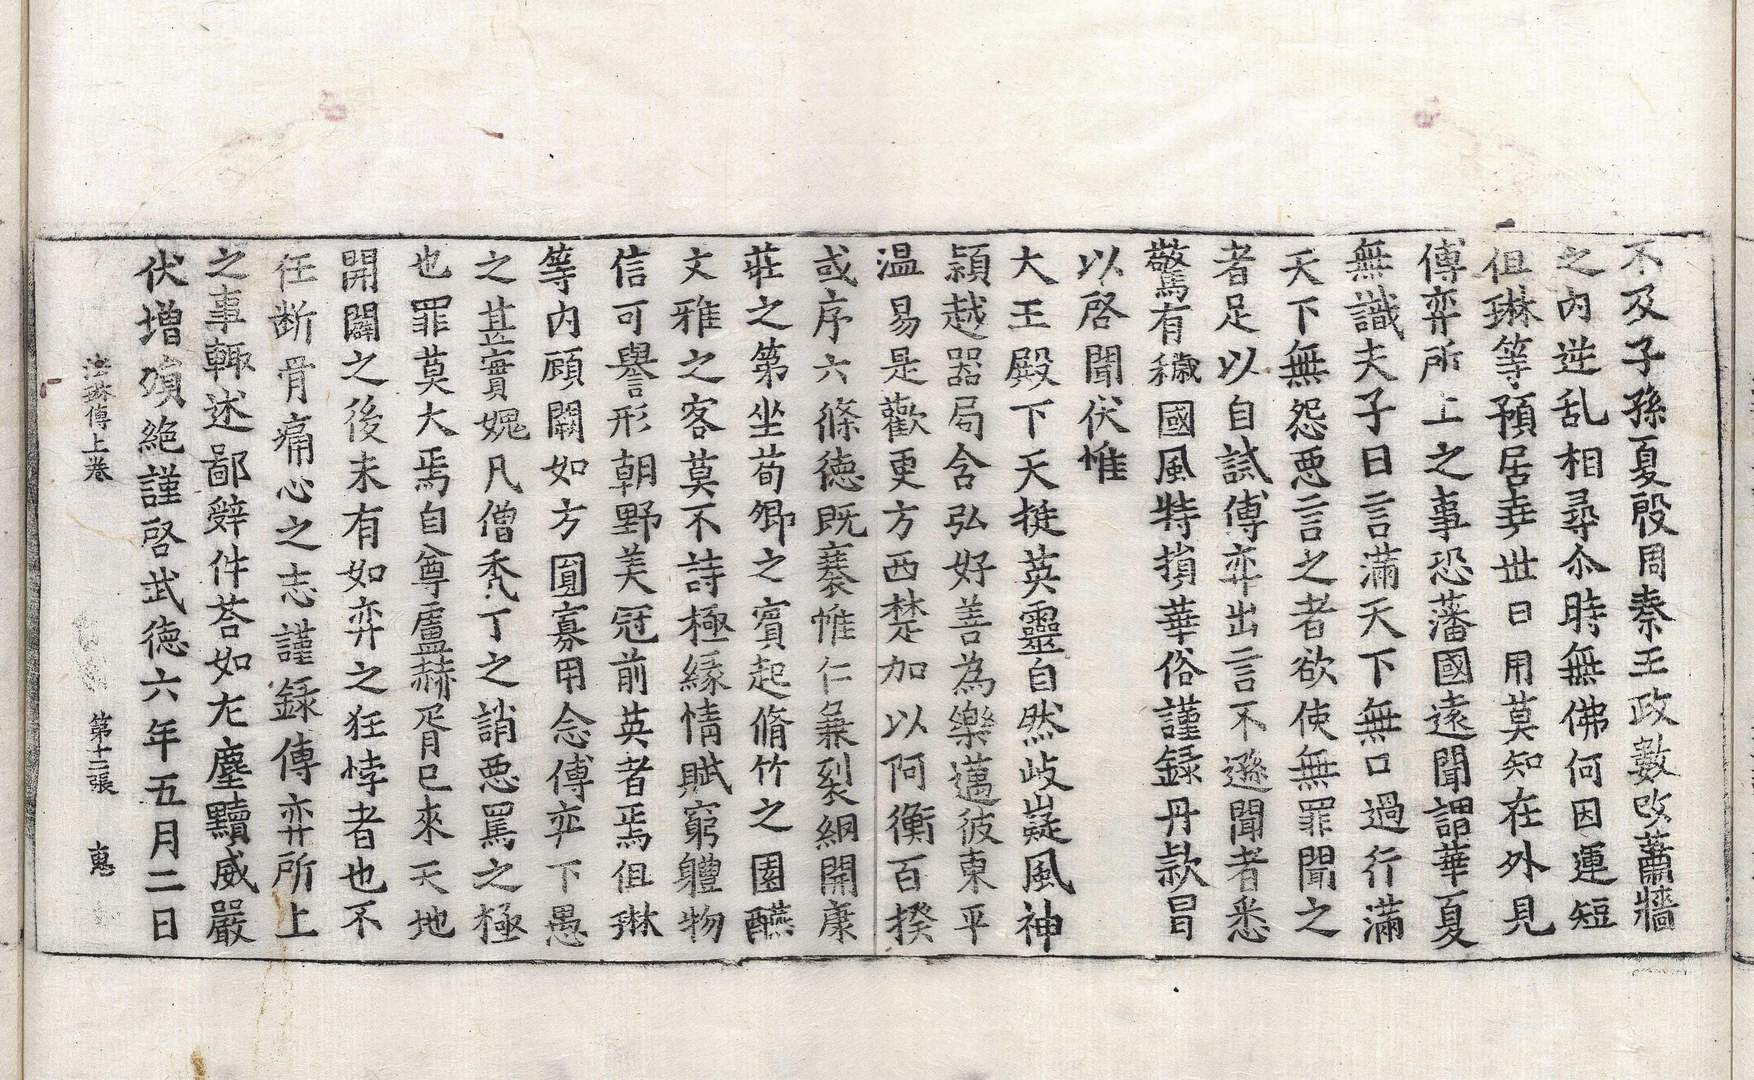 不及子孫夏殷周秦王政數改蕭牆
之內逆乱相尋尒時無佛何因運短
但琳等預居堯世日用莫知在外見
傅弈所上之事恐藩國遠聞謂華夏
無識夫子曰言滿天下無口過行滿
天下無怨惡言之者欲使無罪聞之
者足以自試傅弈出言不遜聞者悉
驚有穢國風特損華俗謹錄丹款冒
以啓聞伏惟
大王殿下天挺英靈自然岐嶷風神
潁越器局含弘好善為樂邁彼東平
温易是歡更方西楚加以阿衡百揆
或序六條德既褰惟仁兼裂網開康
莊之第坐荀卿之賓起脩竹之園醼
文雅之客莫不詩極緣情賦窮體物
信可譽形朝野美冠前英者焉但琳
等內顧闕如方圓寡用念傅弈下愚
之甚實媿凡僧禿丁之誚惡罵之極
也罪莫大焉自尊盧赫胥已來天地
開闢之後未有如弈之狂悖者也不
任斷骨痛心之志謹錄傅弈所上
之事輙述鄙辤件荅如左塵黷威嚴
伏增殞絕謹啓武德六年五月二日
法琳傳上卷 第十二張 惠